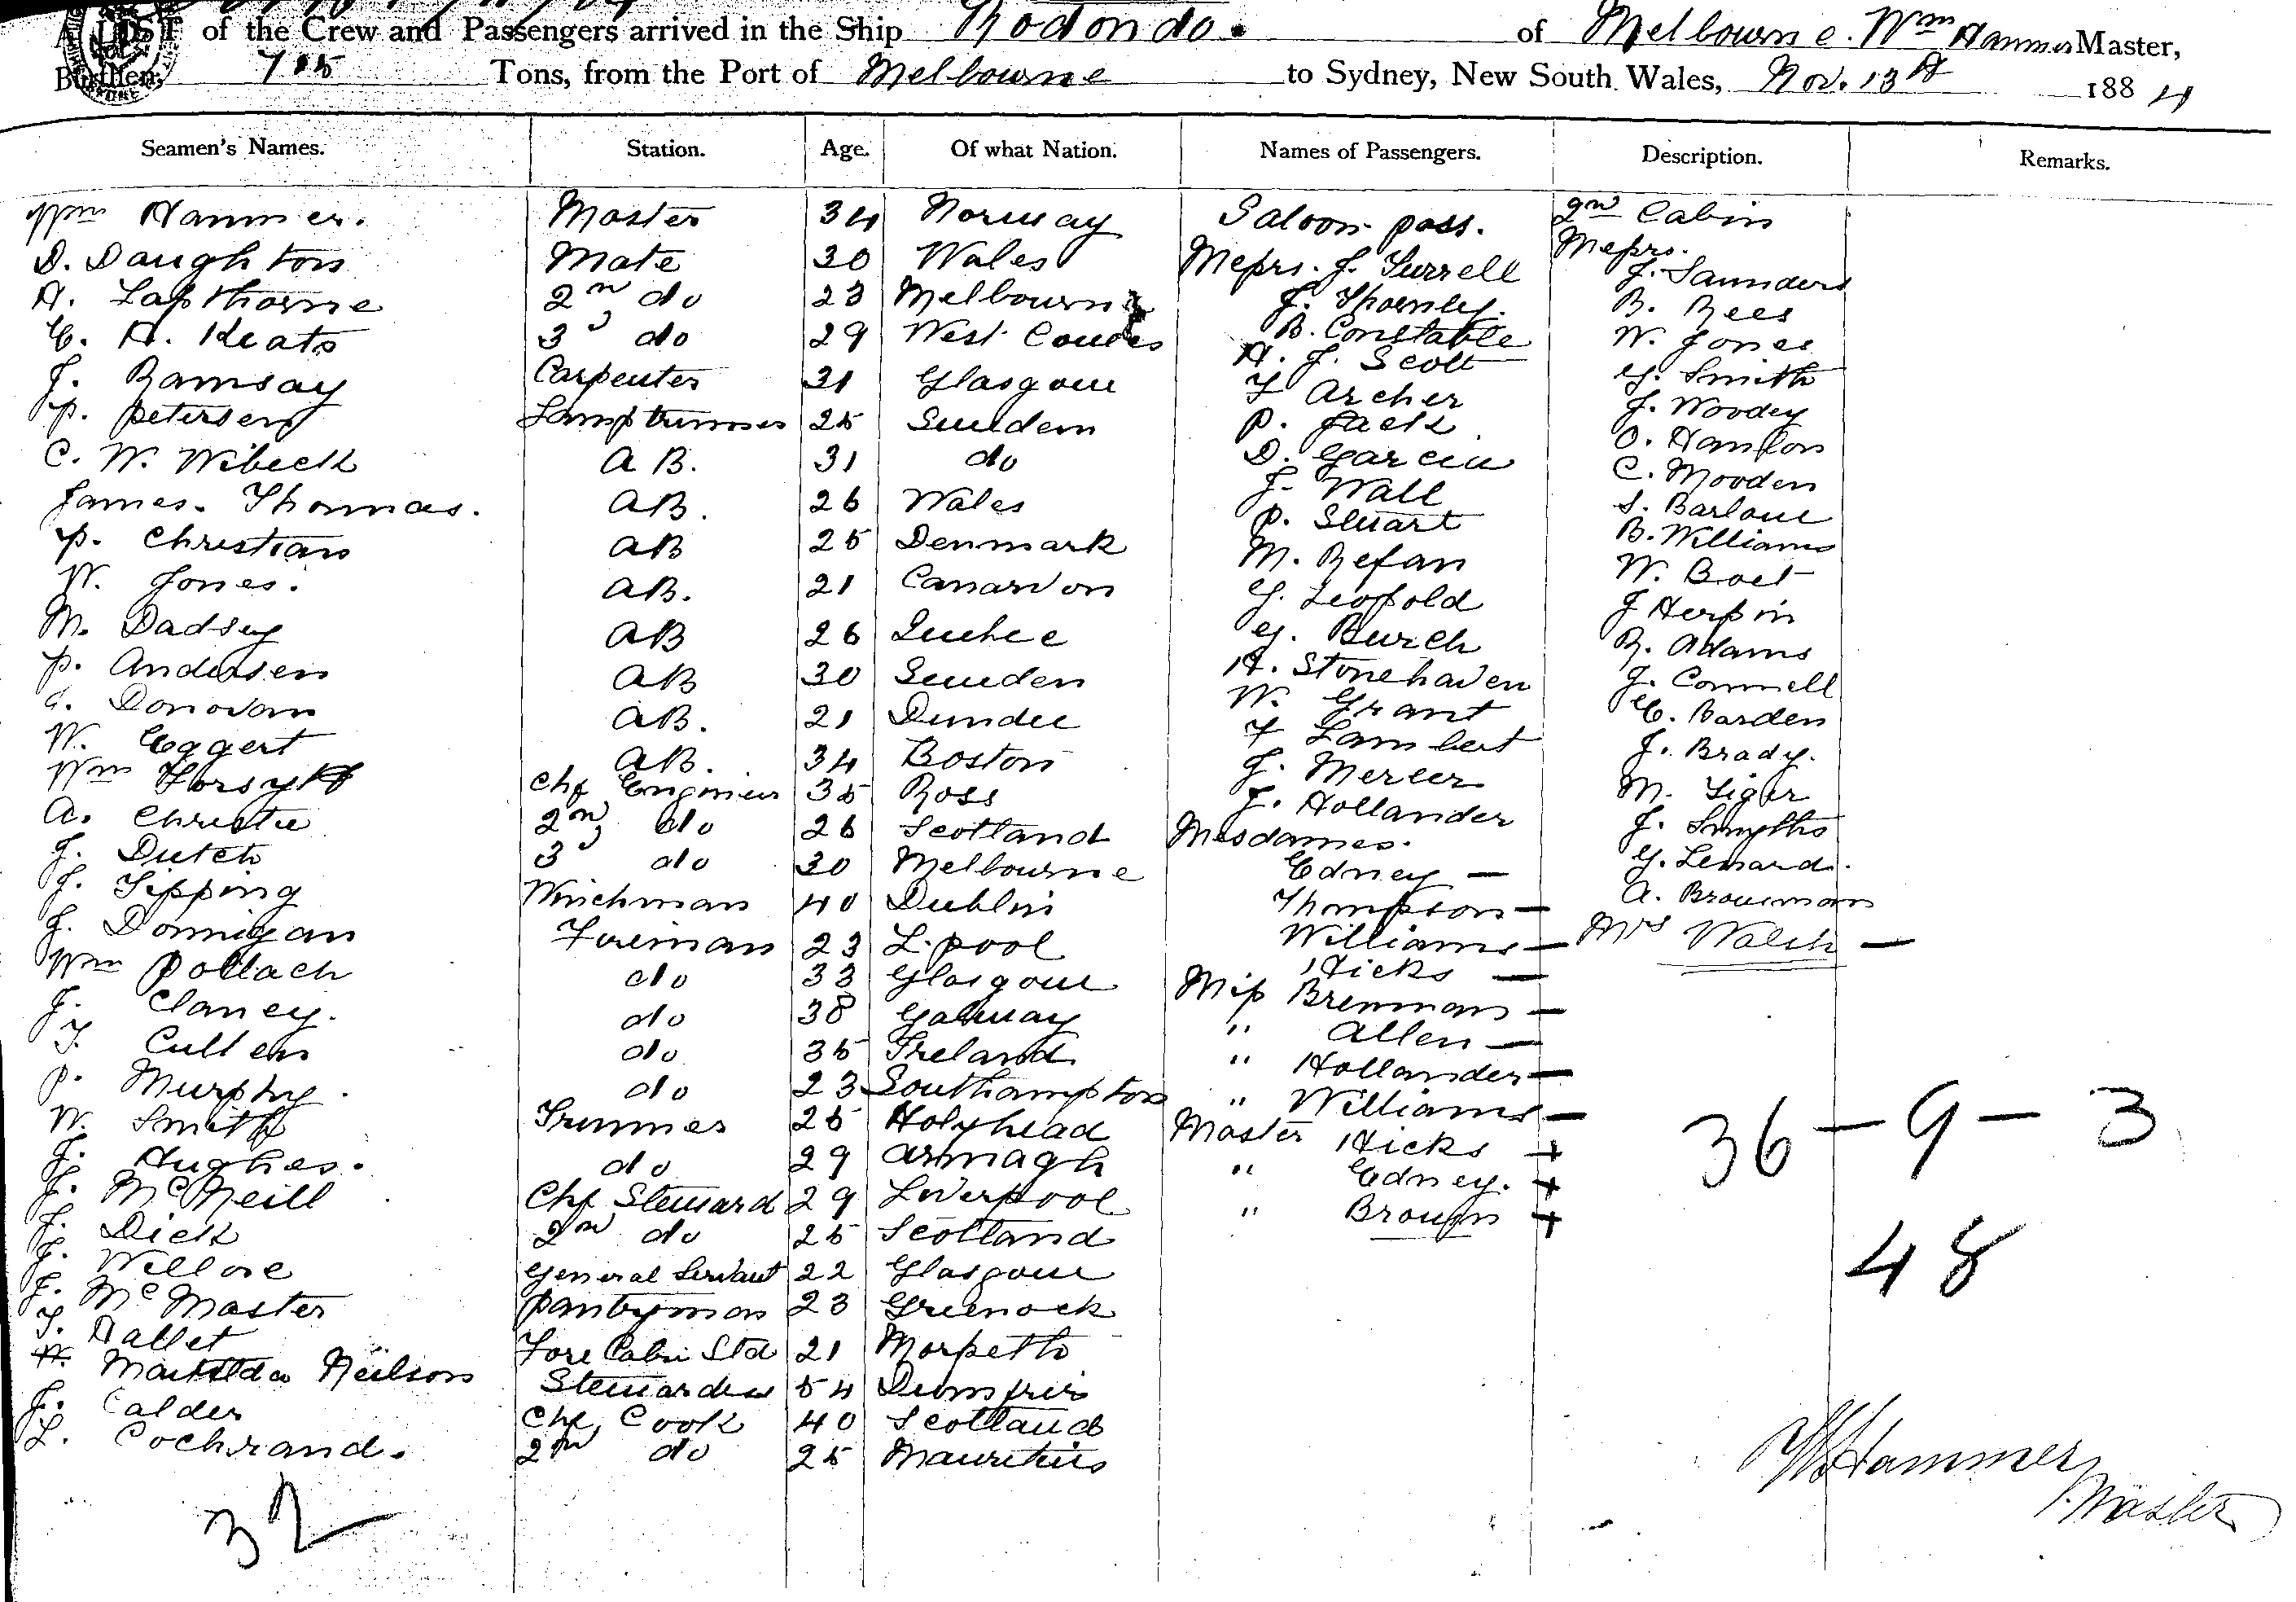 A LIST of the Crew and Passengers arrived in the Ship Rodondo. of Melbourne. Wm Hammer Master,
Burthen, 715 Tons, from the Port of Melbourne to Sydney, New South Wales, Nov. 13th 1884
Seamen's Names. Station. Age. Of what Nation. Names of Passengers. Description. Remarks.
Wm Hammer. Master 34 Norway
D. Daughton Mate 30 Wales
H. Lapthorne 2nd do 23 Melbourne
C. H. Keats 3d do 29 West Coudes
J. Ramsay Carpenter 31 Glasgow
P. Petersen Lamptrimmer 25 Sweden
C. W. Wibeck A B. 31 do
James. Thomas. AB. 26 Wales
P. Christian AB 25 Denmark
W. Jones. AB. 21 Canarvon
M. Dadsey AB 26 Quebec
P. Andersen AB 30 Sweden
Donovan AB. 21 Dundee
W. Eggert AB. 34 Boston
Wm Forsyth Chf Engineer 35 Ross
A. Christie 2nd do 26 Scotland
J. Dutch 3d do 30 Melbourne
J. Tipping Winchman 40 Dublin
J. Donnigan Fireman 23 L.pool
Wm Pollach do 33 Glasgow
J. Claney. do 38 Galway
T. Cullen do 35 Ireland
P. Murphy. do 23 Southampton
W. Smith Trimmer 25 Holyhead
J. Hughes. do 29 Armagh
J. McNeill Chf Steward 29 Liverpool
J. Dick 2nd do 25 Scotland
J. Willore General Servant 22 Glasgow
J. McMaster Pantryman 23 Greenock
T. Hallet Fore Cabin Std 21 Morpeth
Matilda Neilson Stewardess 54 Dumfries
J. Calder Chf Cook 40 Scotland
L. Cochrand. 2nd do 25 Mauritius
32
Saloon pass.
Messrs. J. Turrell
J. Thornley.
B. Constable
H. J. Scott
F Archer
P. Jack
D. Garcia
J. Wall
P. Stuart
M. Refan
G. Leopold
G. Burch
H. Stonehaven
W. Grant
F Lambert
J. Mercer
J. Hollander
Mesdames.
Edney —
Thompson —
Williams —
Hicks —
Miss Brennan —
" Allen —
" Hollander —
" Williams —
Master Hicks +
" Edney. +
" Brown +
2nd Cabin
Messrs.
J. Saunders
B. Rees
W. Jones
G. Smith
J. Woodey
O. Hanlon
C. Mooden
S. Barlow
B. Williams
W. Boet
J Herpin
R. Adams
J. Connell
C. Barden
J. Brady.
M. Tiger
J. Smyths
G. Lenard.
A. Brownman
Mrs Walsh —
36 — 9 — 3
48
Wm Hammer
Master